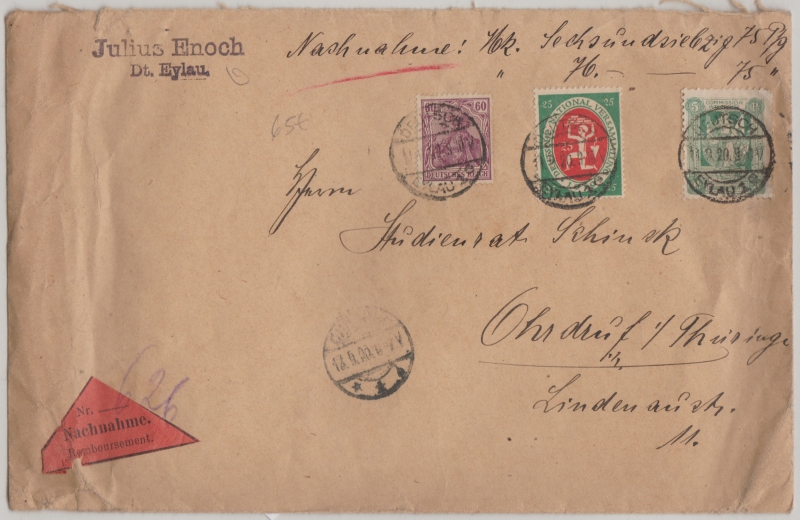 Julius Enoch
Dt. Eylau.
Nachnahme! Mk. Sechsundsiebzig 75 Pfg
" 76. — 75 "
65€
60
DEUTSCHES REICH
25 25
DEUTSCHE NATIONAL VERSAMMLUNG
5 15
DEUTSCH
EYLAU
Herrn
Studienrat Schinsk
Ohrdruf i/Thüringe
Lindenaustr.
11.
Nr. 626
Nachnahme.
Remboursement.